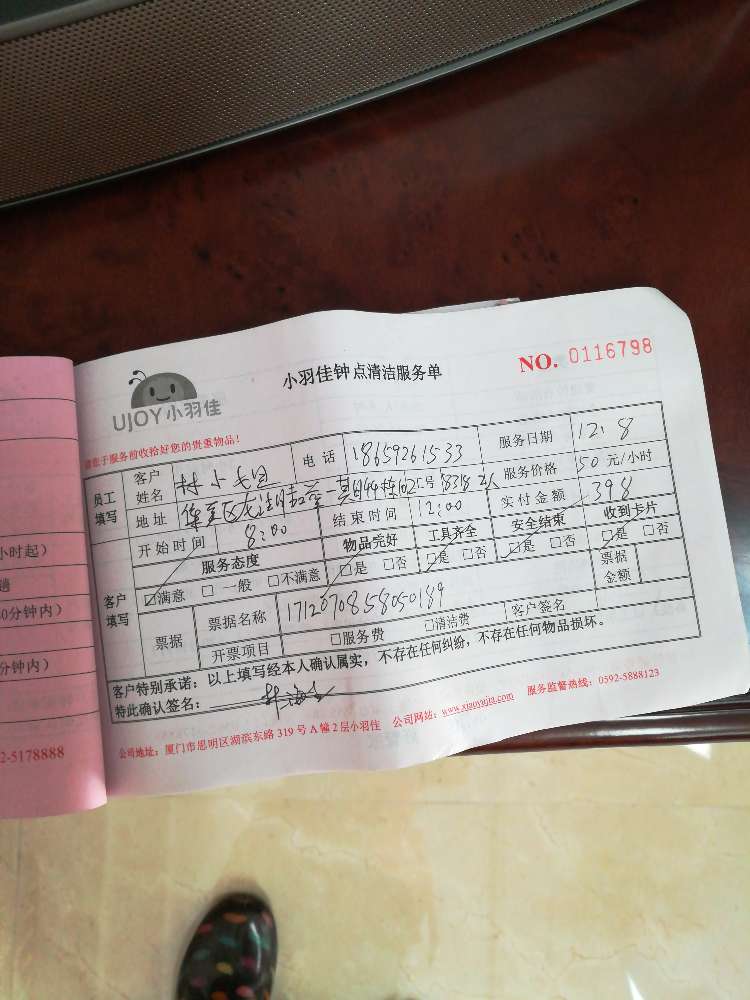 小羽佳钟点清洁服务单
NO. 0116798
UJOY小羽佳
请您于服务前收拾好您的贵重物品!
员工填写 客户姓名 林小毛 电话 18659261533 服务日期 12.8
地址 1025号 2人 服务价格 50元/小时
开始时间 8:00 结束时间 12:00 实付金额 398
客户填写 服务态度 物品完好 工具齐全 安全结束 收到卡片
□满意 □一般 □不满意 □是 □否 □是 □否 □是 □否 □是 □否
票据 票据名称 1712070858050189 客户签名 票据金额
开票项目 □服务费 □清洁费
客户特别承诺:以上填写经本人确认属实,不存在任何纠纷,不存在任何物品损坏。
特此确认签名:
公司地址:厦门市思明区湖滨东路319号A幢2层小羽佳 公司网站:www.xiaoyujia.com 服务监督热线:0592-5888123
小时起)
趟
0分钟内)
分钟内)
2-5178888